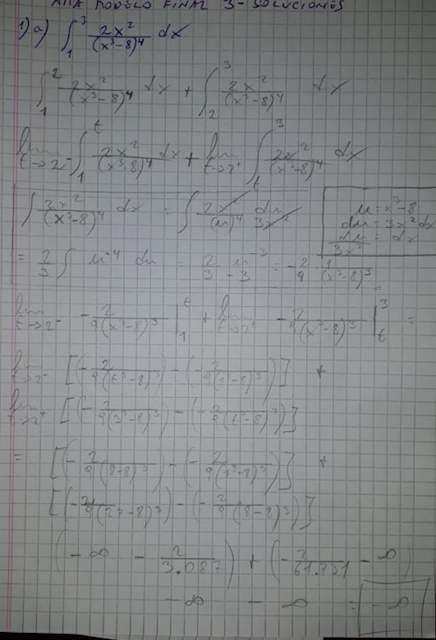 MODELO FINAL 3 - SOLUCIONES
1) a) ∫_1^3 2x²/(x³-8)⁴ dx
∫_1^2 2x²/(x³-8)⁴ dx + ∫_2^3 2x²/(x³-8)⁴ dx
lim t→2⁻ ∫_1^t 2x²/(x³-8)⁴ dx + lim t→2⁺ ∫_t^3 2x²/(x³-8)⁴ dx
∫ 2x²/(x³-8)⁴ dx = ∫ 2x²/(u)⁴ du/3x²
u = x³-8
du = 3x² dx
du/3x² = dx
= 2/3 ∫ u⁻⁴ du = 2/3 u⁻³/-3 = -2/9 1/(x³-8)³
lim t→2⁻ -2/9(x³-8)³ |_1^t + lim t→2⁺ -2/9(x³-8)³ |_t^3 =
lim t→2⁻ [(-2/9(t³-8)³) - (-2/9(1³-8)³)] +
lim t→2⁺ [(-2/9(3³-8)³) - (-2/9(t³-8)³)]
= [(-2/9(8-8)³) - (-2/9(1³-8)³)] +
[(-2/9(27-8)³) - (-2/9(8-8)³)]
(-∞ - 2/3.087) + (-2/61.731 - ∞)
-∞ - ∞ = -∞